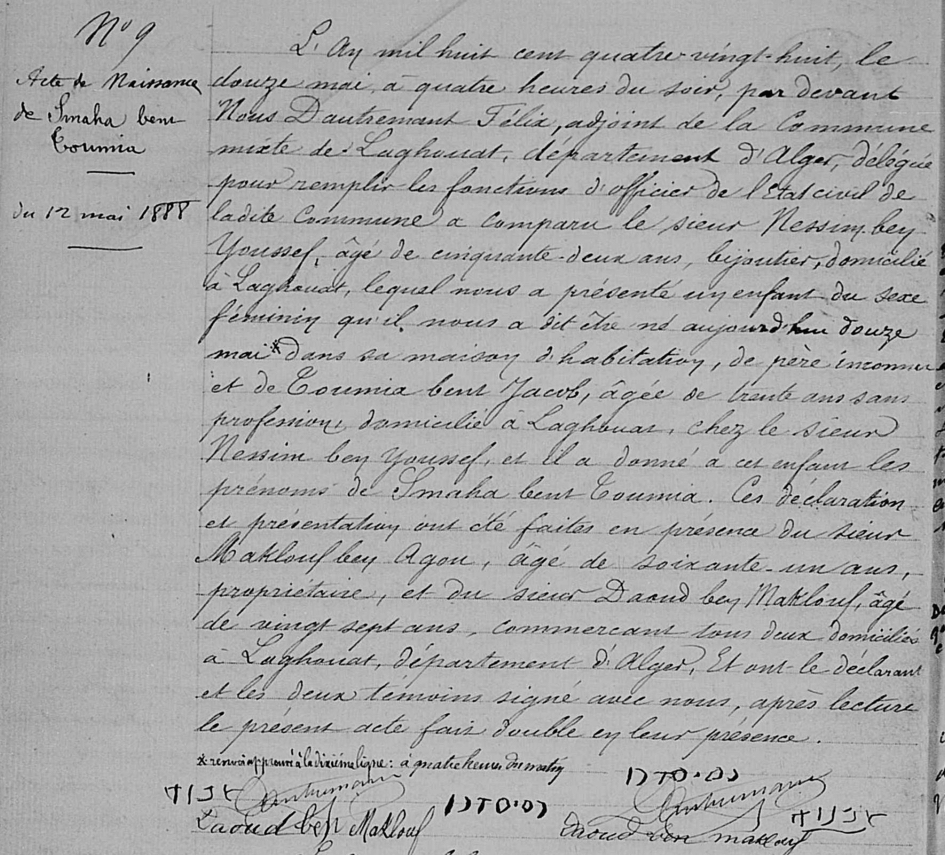 N° 9
Acte de Naissance
de Smaha bent
Toumia
du 12 mai 1888
L'An mil huit cent quatre-vingt-huit, le
douze mai, à quatre heures du soir, par devant
Nous Dautremant Félix, adjoint de la Commune
mixte de Laghouat, département d'Alger, délégué
pour remplir les fonctions d'officier de l'Etat civil de
ladite Commune a comparu le sieur Nessim ben
Youssef, âgé de cinquante-deux ans, bijoutier, domicilié
à Laghouat, lequel nous a présenté un enfant du sexe
féminin qu'il nous a dit être né aujourd'hui douze
mai * dans sa maison d'habitation, de père inconnu
et de Toumia bent Jacob, âgée de trente ans sans
profession, domicilié à Laghouat, chez le sieur
Nessim ben Youssef, et il a donné à cet enfant les
prénoms de Smaha bent Toumia. Ces déclaration
et présentation ont été faites en présence du sieur
Maklouf ben Agou, âgé de soixante-un ans,
propriétaire, et du sieur Daoud ben Maklouf, âgé
de vingt sept ans, commerçant tous deux domiciliés
à Laghouat, département d'Alger, Et ont le déclarant
et les deux témoins signé avec nous, après lecture
le présent acte fait double en leur présence.
* renvoi approuvé à la dixième ligne : à quatre heures du matin
Dautremant
Daoud ben Maklouf
Dautremant
daoud ben maklouf